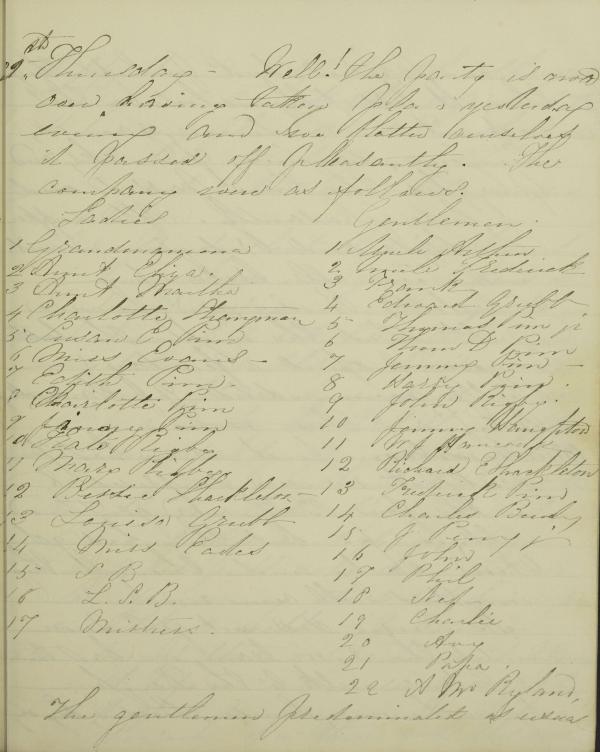 29th Thursday - Well! the party is now
over having taken place yesterday
evening and we flatter ourselves
it passed off pleasantly. The
company were as follows.
Ladies Gentlemen.
1 Grandmamma 1 Uncle Arthur
2 Aunt Eliza. 2 Uncle Frederick
3 Aunt Martha 3 Frank
4 Charlotte Thompson 4 Edward Grubb
5 Susan E Pim 5 Thomas Pim jr
6 Miss Evans - 6 Thom D Pim
7 Edith Pim - 7 Jemmy Pim -
8 Charlotte Pim 8 Harry Pim.
9 Pim 9 John Rigby.
10 Kate Rigby 10 Jemmy
11 Mary Rigby 11 W J
12 Bessie Shackleton - 12 Richard E Shackleton
13 Louisa Grubb 13 Frederick Pim
14 Miss Eades 14 Charles
15 S B 15 J Penny jr
16 L. S. B. 16 John
17 Mistress. 17 Phil
18 Nef
19 Charlie
20
21 Papa.
22 A Mr Ryland,
The gentlemen predominated as usual